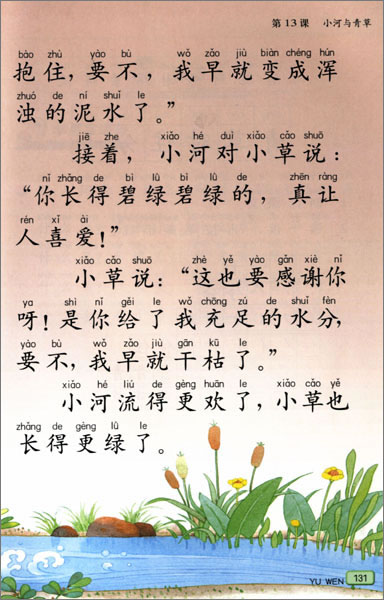 第13课 小河与青草
bào zhù yào bù wǒ zǎo jiù biàn chéng hún
抱住，要不，我早就变成浑
zhuó de ní shuǐ le
浊的泥水了。”
jiē zhe xiǎo hé duì xiǎo cǎo shuō
接着，小河对小草说：
nǐ zhǎng de bì lǜ bì lǜ de zhēn ràng
“你长得碧绿碧绿的，真让
rén xǐ ài
人喜爱！”
xiǎo cǎo shuō zhè yě yào gǎn xiè nǐ
小草说：“这也要感谢你
ya shì nǐ gěi le wǒ chōng zú de shuǐ fèn
呀！是你给了我充足的水分，
yào bù wǒ zǎo jiù gān kū le
要不，我早就干枯了。”
xiǎo hé liú de gèng huān le xiǎo cǎo yě
小河流得更欢了，小草也
zhǎng de gèng lǜ le
长得更绿了。
YU WEN 131